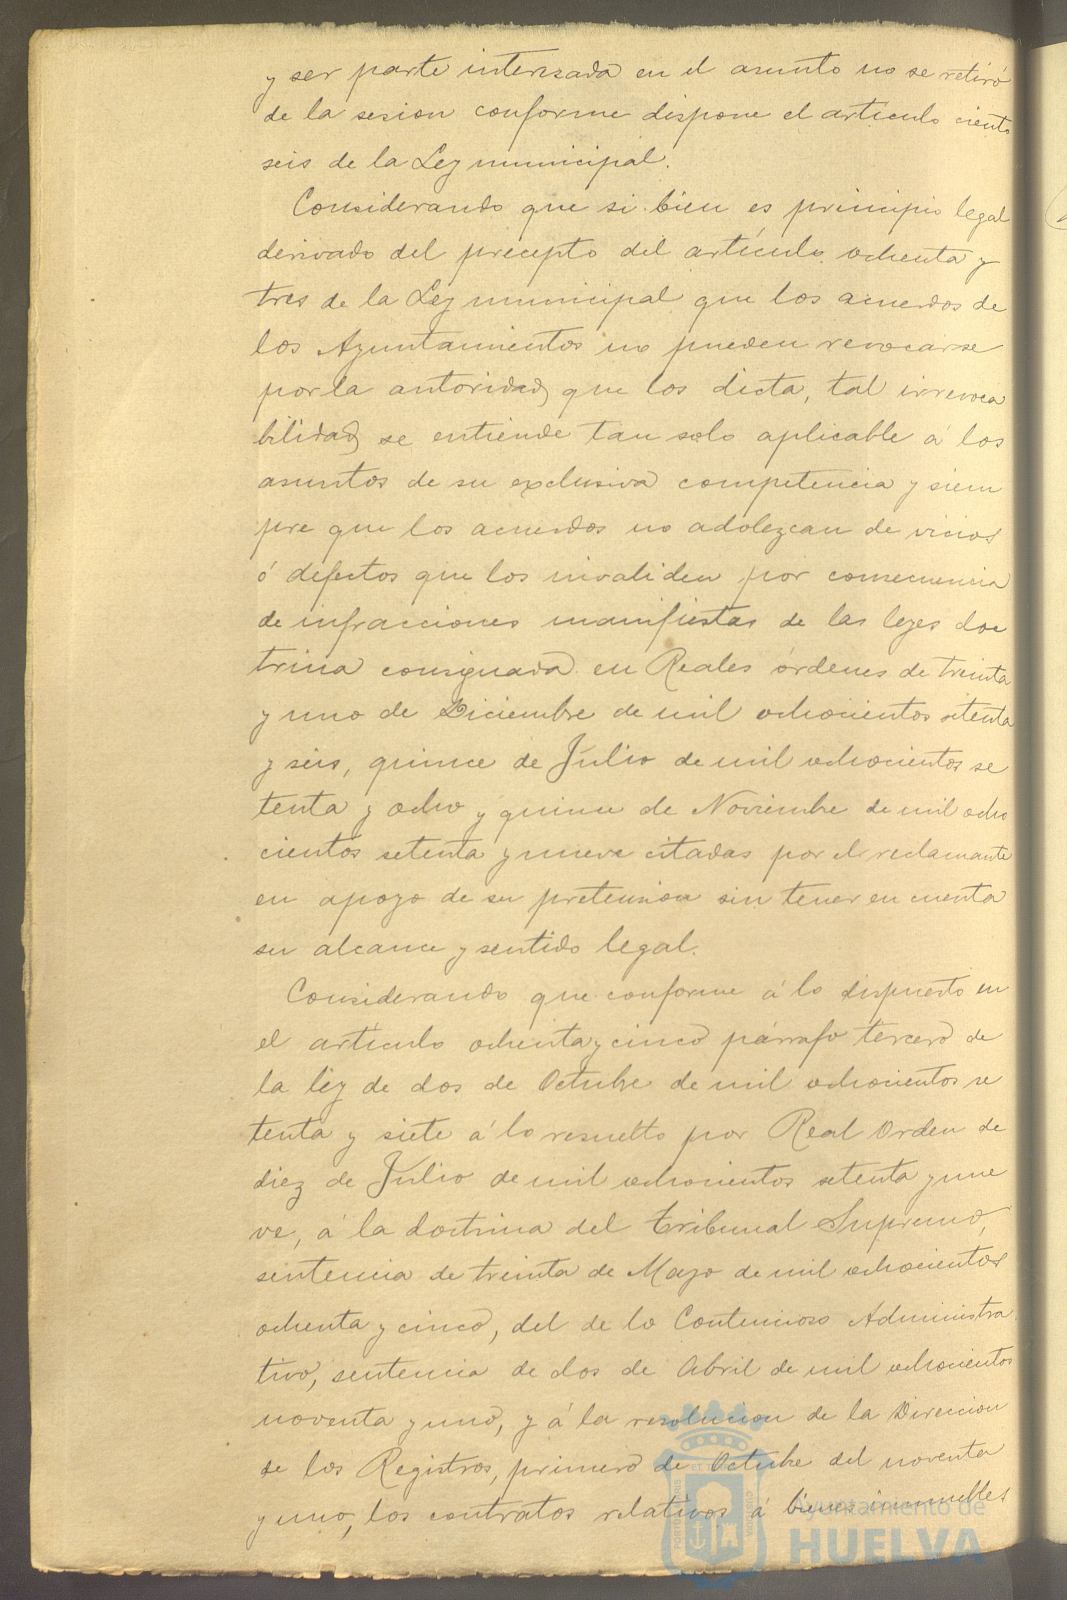 y ser parte interesada en el asunto no se retiró
de la sesion conforme dispone el artículo ciento
seis de la Ley municipal.
Considerando que si bien es principio legal
derivado del precepto del artículo ochenta y
tres de la Ley municipal que los acuerdos de
los Ayuntamientos no pueden revocarse
por la autoridad que los dicta, tal irrevoca
bilidad se entiende tan solo aplicable á los
asuntos de su exclusiva competencia y siem
pre que los acuerdos no adolezcan de vicios
ó defectos que los invaliden por consecuencia
de infracciones manifiestas de las leyes doc
trina consignada en Reales órdenes de treinta
y uno de Diciembre de mil ochocientos setenta
y seis, quince de Julio de mil ochocientos se
tenta y ocho y quince de Noviembre de mil ocho
cientos setenta y nueve citadas por el reclamante
en apoyo de su pretension sin tener en cuenta
su alcance y sentido legal.
Considerando que conforme á lo dispuesto en
el artículo ochenta y cinco párrafo tercero de
la ley de dos de Octubre de mil ochocientos se
tenta y siete á lo resuelto por Real Orden de
diez de Julio de mil ochocientos setenta y nue
ve, á la doctrina del Tribunal Supremo,
sentencia de treinta de Mayo de mil ochocientos
ochenta y cinco, del de lo Contencioso Administra
tivo, sentencia de dos de Abril de mil ochocientos
noventa y uno, y á la resolucion de la Direccion
de los Registros, primero de Octubre del noventa
y uno, los contratos relativos á bienes inmuebles
Ayuntamiento de
HUELVA